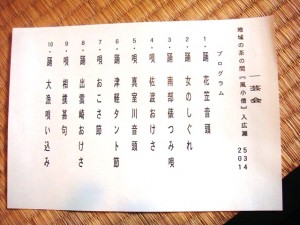 一芸会
地域の茶の間『風小僧』入広瀬
プログラム
1・踊 花笠音頭
2・踊 女のしぐれ
3・踊 南部俵つみ唄
4・唄 佐渡おけさ
5・唄 真室川音頭
6・踊 津軽タント節
7・唄 おこさ節
8・踊 出雲崎おけさ
9・唄 相撲甚句
10・踊 大漁唄い込み